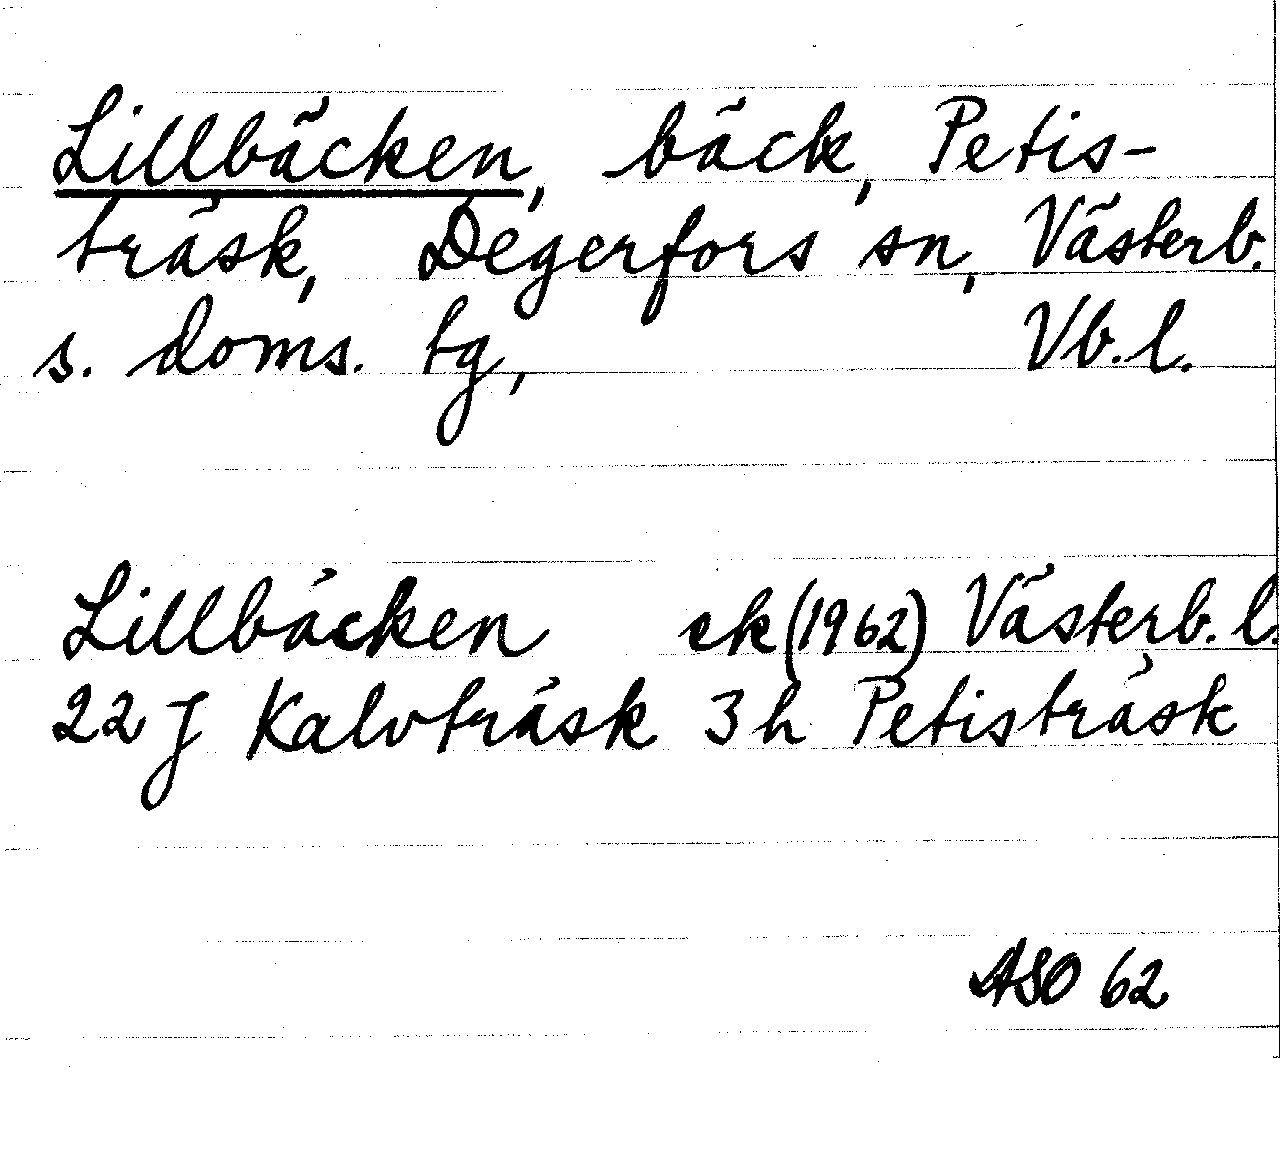 Lillbäcken, bäck, Petis-
träsk, Degerfors sn, Västerb.
s. doms. tg, Vb.l.
Lillbäcken ek (1962) Västerb. l.
22 J Kalvträsk 3h Petisträsk
ASO 62